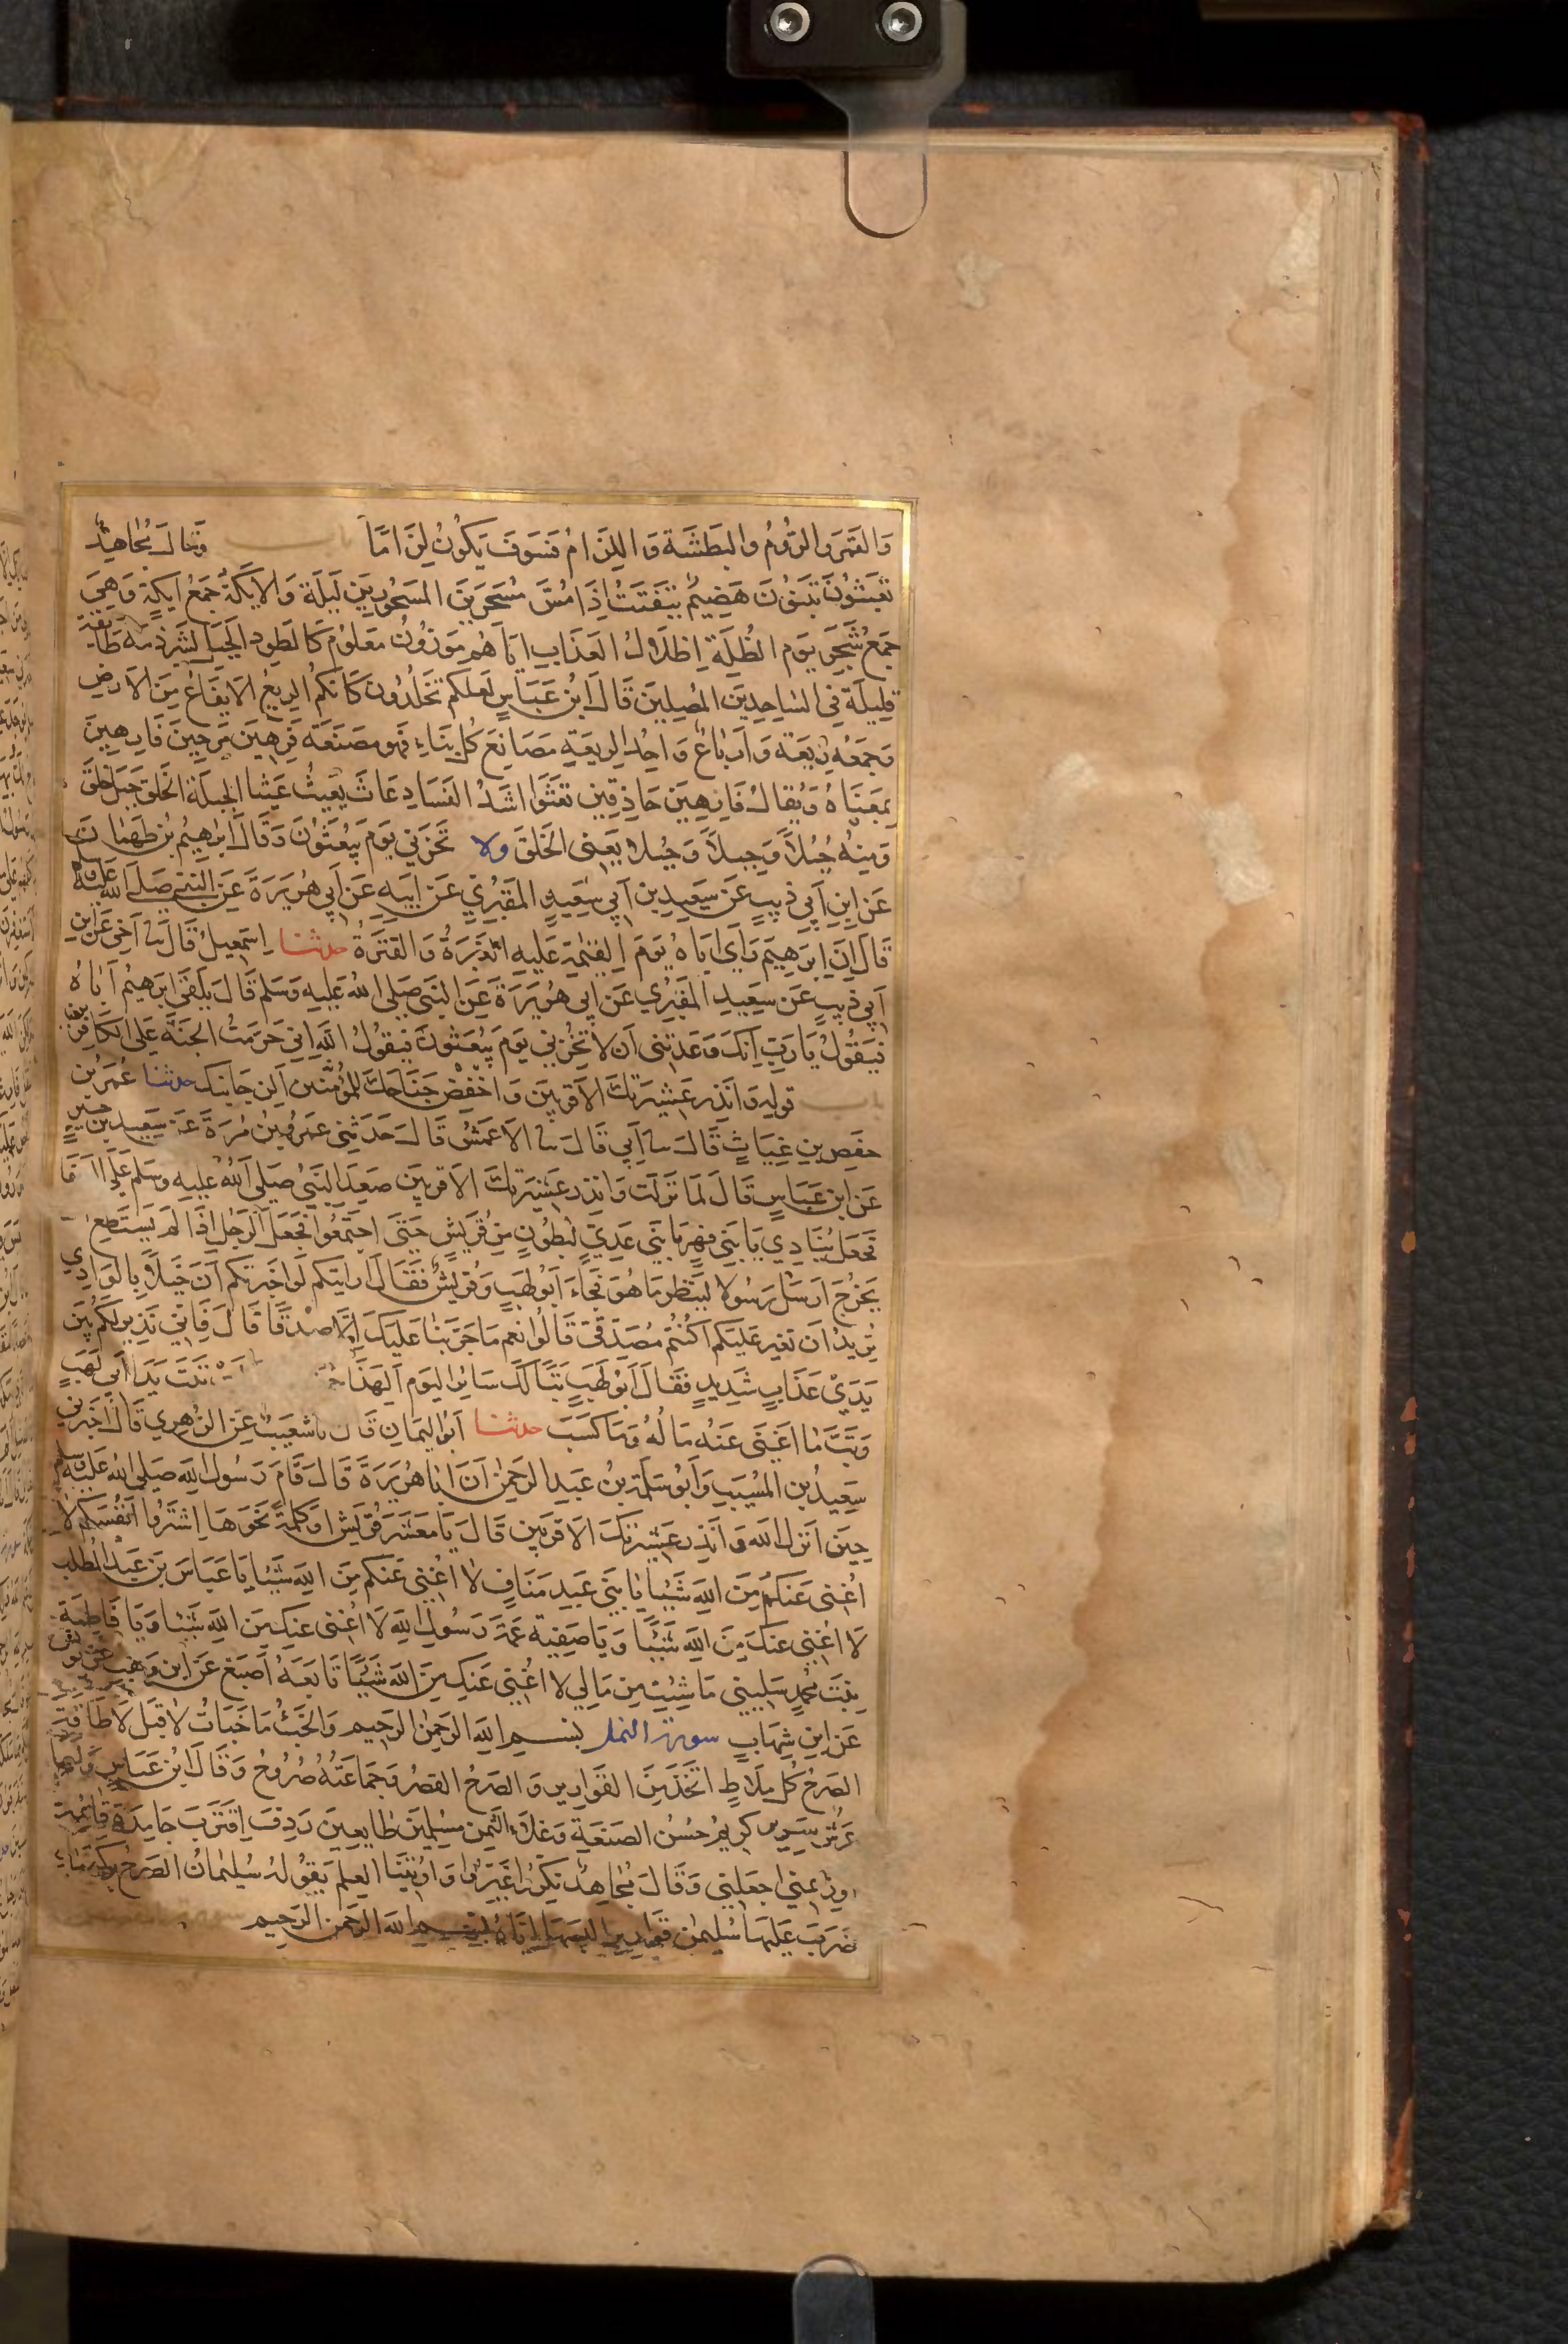 وَالقَمَرَ وَالرُّومُ وَالبَطْشَةَ وَاللِّزَامُ فَسَوفَ يَكُونُ لِزَامًا باب وَقَالَ مُجَاهِدٌ
تَعبَثُونَ تَبنُونَ هَضِيمٌ يَتَفَتَّتُ اِذَا مُسَّ مُسَحَّرِينَ المَسحُورِينَ لَيكَة وَالايكَةُ جَمعُ ايكَةٍ وَهِيَ
جَمعُ شَجَرٍ يَومِ الظُّلَةِ اِظلَالُ العَذَابِ اِيَّاهُم مَوزُونٍ مَعلُوم كَالطَود الجَبَل لشَرذِمَة طَايفَة
قَلِيلَة فِى السَّاجِدِينَ المُصَلِّينَ قَالَ ابنُ عَبَّاسٍ لَعَلَّكُم تَخلُدُونَ كَانَّكُم الرِيعُ الايفَاعُ مِنَ الاَرضِ
وَجَمعُهُ رِيَعَة وَاَريَاعٌ وَاحِدُ الرِيعَةِ مَصَانِعَ كُلُّ بِنَاءٍ فَهُو مَصنَعَة فَرِهِينَ مَرِحِينَ فَارِهِينَ
بِمَعنَاهُ وَيُقَالُ فَارِهِينَ حَاذِقِينَ تَعثَوا اشَدُّ الفَسَادِ عَاثَ يَعِيثُ عَيثا الجِبِلَّة الخَلقَ جُبِلَ خُلِقَ
وَمِنهُ جُبُلًا وَجِبِلًا وَجُبلا يَعنِى الخَلقَ ولا تُخزِنِي يَومَ يُبعَثُونَ وَقَالَ ابرَاهِيمُ بنُ طَهمَانَ
عَنِ ابنِ اَبِي ذِيبٍ عَن سَعِيدِ بنِ اَبِي سَعِيدٍ المَقبُرِيِّ عَن ابِيهِ عَن اَبِي هُرَيرَةَ عَنِ النَّبِيِّ صَلَّى الله عَلَيهِ وسلم
قَالَ اِنَّ اِبرَهِيمَ رَاَى ابَاهُ يَومَ القِيَمَةِ عَلَيهِ الغَبَرَةُ وَالقَتَرَةُ حدثنا اِسمَعِيلُ قَالَ نا اَخِي عَنِ ابنِ
اَبِي ذِيبٍ عَن سَعِيدٍ المَقبُرِي عَن اَبِى هُرَيرَةَ عَنِ النَبِيِّ صَلَى اللهُ عَلَيهِ وَسَلَّم قَالَ يَلقَى ابرَهِيمُ اَبَاهُ
فَيَقُولُ يَا رَبِّ اِنَّكَ وَعَدتَنِى اَن لا تُخزِنِي يَومَ يُبعَثُونَ فَيَقُولُ الله اِنِي حَرَّمتُ الجنَّةَ عَلَى الكَافِرِينَ
باب قَولِهِ وَاَنذِر عَشِيرَتَكَ الاَقرَبِينَ وَاخفِض جَنَاحَكَ للمُؤمِنِينَ اَلِن جَانبَك حدثنا عُمَرُ بن
حَفصِ بنِ غِيَاثٍ قَالَ نا اَبِي قَالَ نا الاَعمَشُ قَالَ حَدَّثَنِي عَمرُو بنُ مُرَّةَ عَن سَعِيد بن جبير
عَن ابنِ عَبَّاسٍ قَالَ لَمَّا نَزَلَت وَانذِر عَشِيرَتَكَ الاَقرَبِينَ صَعِدَ النَّبِيُّ صَلَى اللهُ عَلَيهِ وَسَلَّم عَلَى الصَّفَا
فَجَعَلَ يُنَادِي يَا بَنِي فِهرٍ يَا بَنِي عَدِيٍّ لِبُطُونٍ مِن قُرَيشٍ حَتَّى اجتَمَعُوا فَجَعَلَ الرَجُل اِذَا لَم يَستَطِع
يَخرُج ارسَلَ رَسُولا لِيَنظُر مَا هُوَ فَجَاءَ اَبُو لَهَبٍ وَقُرَيشٌ فَقَالَ اَرَايتَكُم لَو اخبَرتُكُم اَنَّ خَيلًا بِالوَادِي
تُرِيدُ ان تُغِيرَ عَلَيكُم اَكُنتُم مُصَدِّقِيَّ قَالُوا نعم مَا جَرَّبنَا عَلَيكَ اِلَّا صِدقًا قَالَ فَاِنِّي نَذِير لَكُم بَين
يَدَي عَذَابٍ شَدِيدٍ فَقَالَ اَبُو لَهَبٍ تَبًّا لَكَ سَائِرَ اليَوم اَلِهَذَا تَبَّت يَدَا اَبِى لَهَبٍ
وَتَبَّ مَا اَغنَى عَنهُ مَالُهُ وَمَا كَسَبَ حدثنا اَبُو اليَمَانِ قَالَ نا شُعَيبٌ عَنِ الزُهرِي قَالَ اَخبَرَنِي
سَعِيدُ بن المُسَيَّبِ وَاَبُو سَلَمَة بنُ عَبدِ الرَحمَن اَنَّ ابَا هُرَيرَةَ قَالَ قَامَ رَسُولُ اللهِ صَلَى اللهُ عَلَيهِ وسلم
حِينَ انزلَ الله وَانذِر عَشِيرَتَكَ الاَقرَبِينَ قَالَ يَا مَعشَرَ قُرَيشٍ اَو كَلِمَةً نَحوَهَا اِشتَرُوا اَنفُسَكُم لا
اُغنِى عَنكُم مِنَ اللهِ شَيئًا يَا بَنِي عَبدِ مَنَافٍ لا اُغنِى عَنكُم مِنَ اللهِ شَيئا يَا عَبَّاسَ بنَ عَبدِ المُطَّلِب
لَا اُغنِي عَنكَ مِنَ اللهِ شَيئًا وَيَا صَفِيَّة عَمَّة رَسُولِ اللهِ لَا اُغنِى عَنكِ مِنَ اللهِ شَيئا وَيَا فَاطِمَة
بِنتَ مُحَمَّدٍ سَلِينِي مَا شِئتِ مِن مَالِي لا اُغنِي عَنكِ مِنَ اللهِ شَيئًا تَابَعَهُ اَصبَغ عَن ابنِ وَهبٍ عَن يُونُسَ
عَن ابنِ شِهَابٍ سورة النمل بِسمِ اللهِ الرَحمنِ الرَحِيم وَالخَبءُ مَا خَبَاتَ لَا قِبَل لَا طَاقَة
الصَرحُ كُل مِلَاطٍ اتُّخِذَ مِنَ القَوَارِيرِ وَالصَرحُ القَصرُ وَجَمَاعَتُهُ صُرُوحٌ وَقَالَ ابنُ عَبَّاسٍ وَلَهَا
عَرشٌ سَرِير كَرِيم حُسنُ الصَنعَةِ وَغَلَاءِ الثَمَن مُسلِمِينَ طَايعِينَ رَدِفَ اِقتَرَبَ جَامِدَة قَائِمَة
اوزِعنِي اجعَلنِي وَقَالَ مُجَاهِدٌ نَكِّرُوا غَيِّرُوا وَاُوتِينَا العِلمَ يَقُولُهُ سُلَيمَانُ الصَرحُ بِركَة مَاء
ضَرَبَ عَلَيهَا سُلَيمن قَوَارِيرَ البَسَهَا اِيَّاهُ بِسمِ اللهِ الرَحمَنِ الرَحِيم